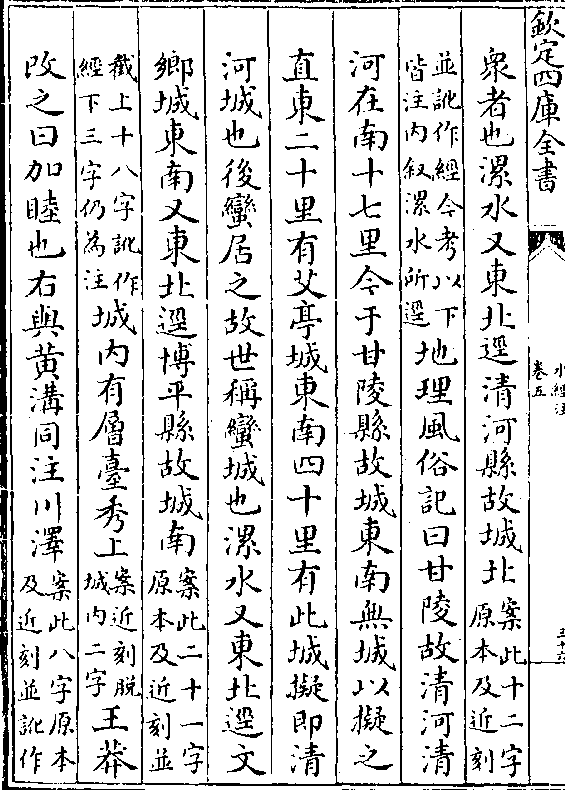 欽定四庫全書
水經注
卷五
三十六
衆者也漯水又東北逕清河縣故城北案此十二字原本及近刻
並訛作經今考以下皆注内叙漯水所逕地理風俗記曰甘陵故清河清
河在南十七里今于甘陵縣故城東南無城以擬之
直東二十里有艾亭城東南四十里有此城擬即清
河城也後蠻居之故世稱蠻城也漯水又東北逕文
鄉城東南又東北逕博平縣故城南案此二十一字原本及近刻並
截上十八字訛作經下三字仍為注城内有層臺秀上案近刻脱城内二字王莽
改之曰加睦也右與黄溝同注川澤案此八字原本及近刻並訛作